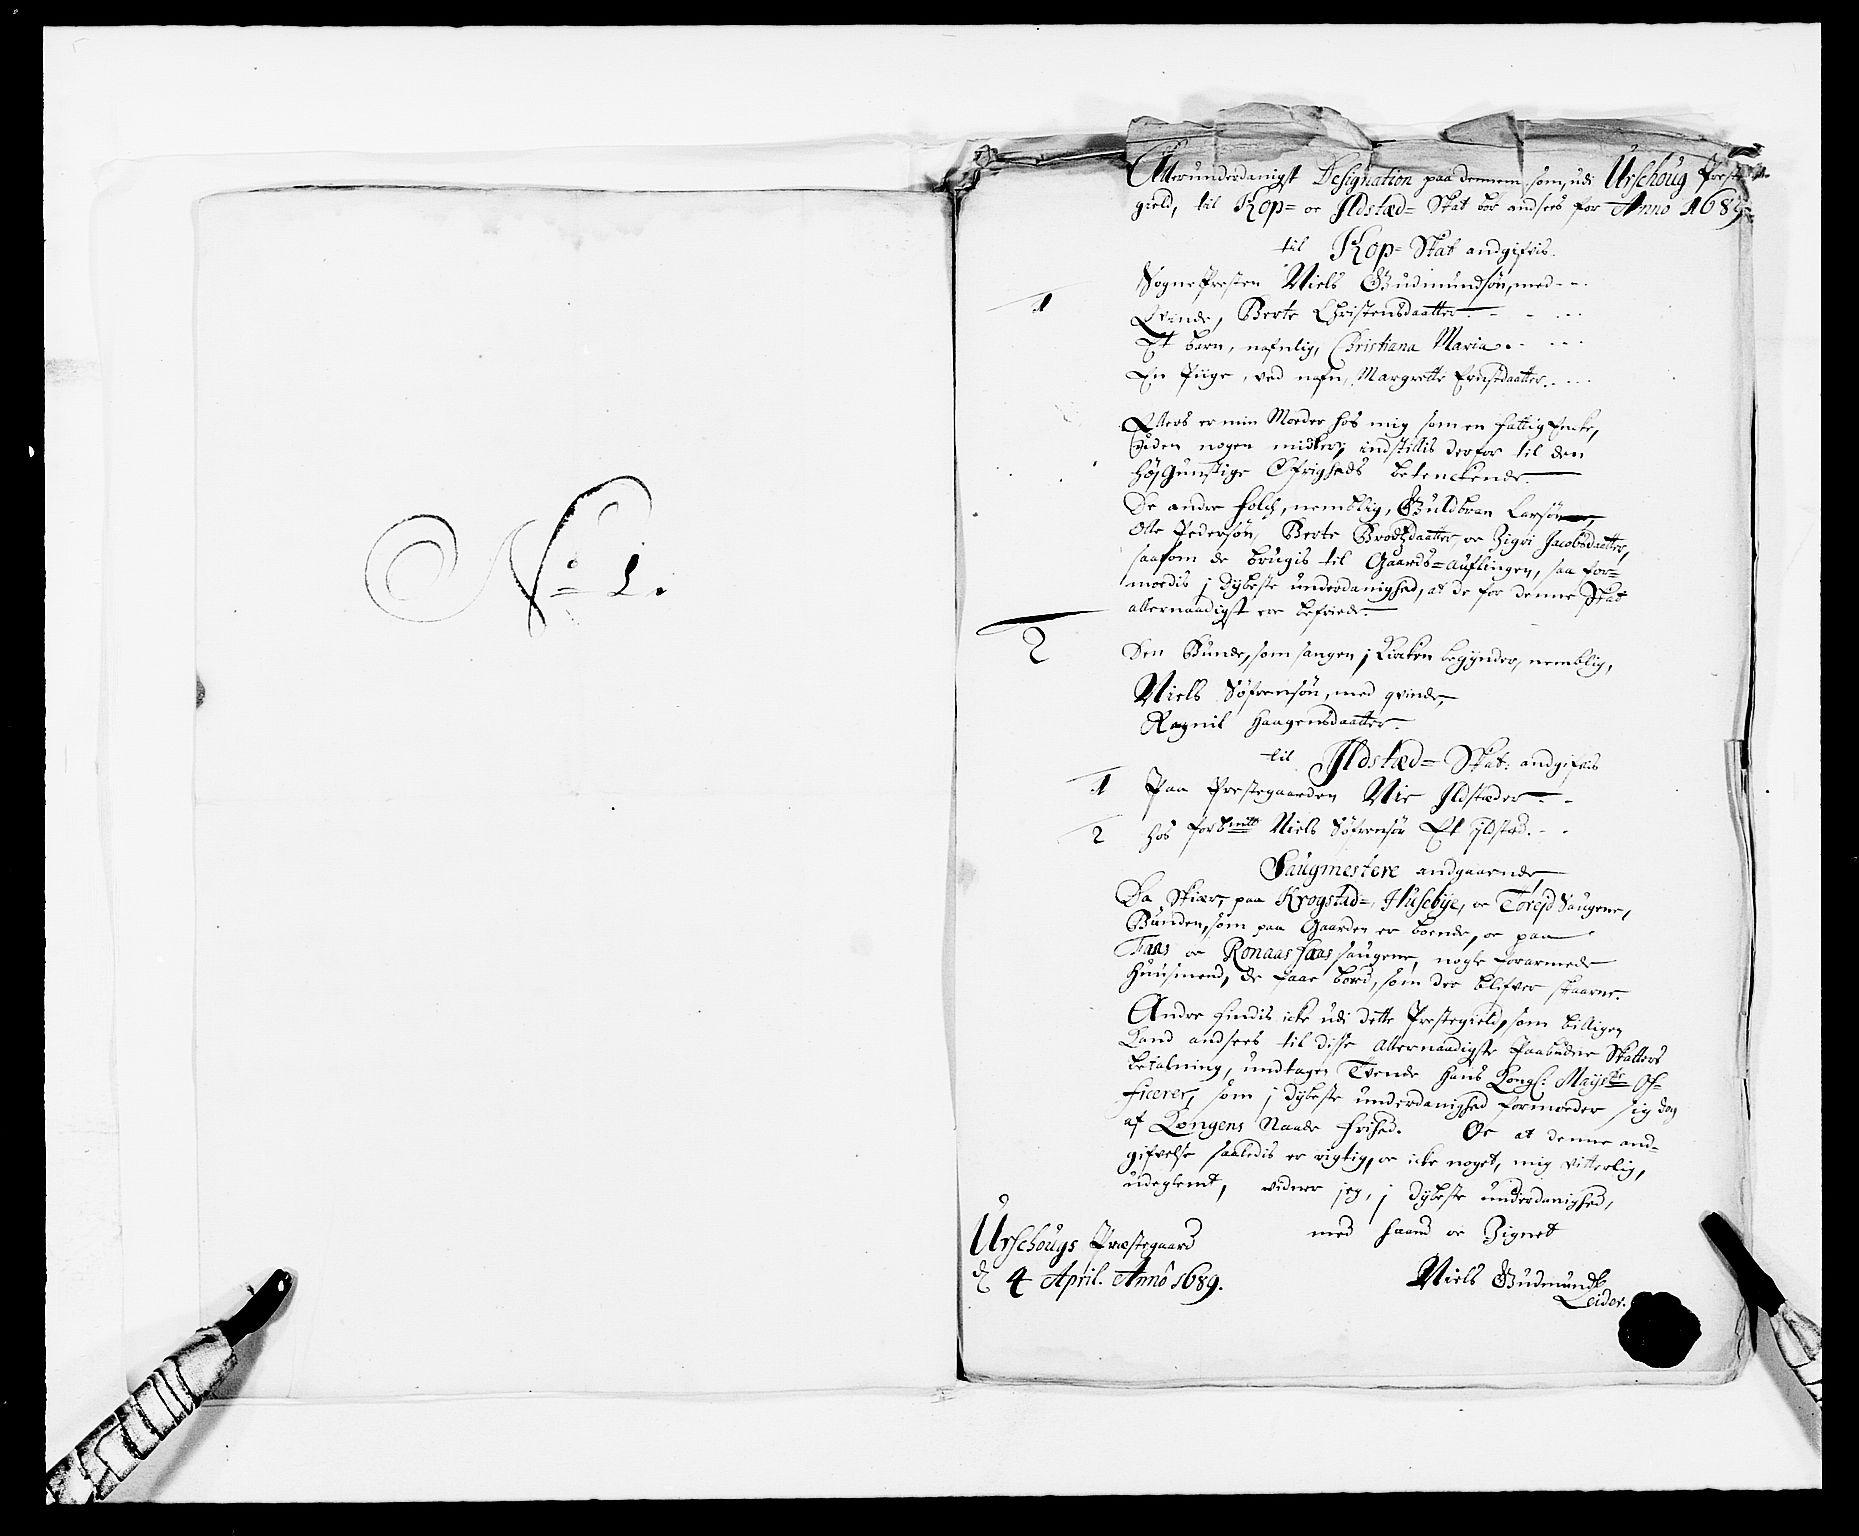 No 1.
Allerunderdanigst Designation paa dennem som, udi Urschoug Preste
gield, til Kop= oc Ildstæd= Skat bør andsees for Anno 1689
til Kop= Skat andgifvis.
1
SognePresten Niels Gudmundsøn, med
Qvinde, Berte Christensdaatter
Et barn, nafnlig, Christiana Maria
En Piige, ved nafn, Margrette Ernstdaatter
Ellers er min Moeder hos mig som en fattig Encke,
uden nogen midler, indstillis derfor til den
HøjGunstige Øfrigheds betenckende.
De andre folch, nemblig, Guldbran Larsøn,
Olle Pedersøn, Berte Brodsdaatter oc Zigri Jacobsdaatter,
saasom de brugis til Gaards=auflingen, saa for=
moedis j dybeste underdanighed, at de for denne Skat
allernaadigst ere befriede.
2
Den Bunde, som sangen j Kircken begynder, nemblig,
Niels Søfrensøn, med qvinde,
Ragnil Haagensdaatter.
til Ildstæd= Skat: andgifvis
1 Paa Prestegaarden Nie Ildstæder
2 hos forbemelte Niels Søfrensøn Et ildstæd.
Saugmestere andgaaende,
Da Skiær, paa Krogstad=, Husebye, oc Torejd Saugene,
Bunden, som paa Gaarden er boende, oc paa
Faas oc Ronaasfaas saugene, nogle forarmede
Huusmend, de faae bord, som der blifver skaarne.
Andre findis icke udi dette Prestegield, som billigen
Kand andsees til disse Allernaadigste Paabudne Skatters
betalning, undtagen Tvende Hans Kongl: Mayst: Of=
ficerer, som j dybeste underdanighed formoeder sig dog
af Kongens Naade frihed. Oc at denne and=
gifvelse saaledis er rigtig, oc icke noget, mig vitterlig,
udeglemt, vidner jeg, j dybeste underdanighed,
med haand oc Zignet
Urschougs Præstegaard
d 4 April. Anno 1689.
Niels Gudmunds
Leider.